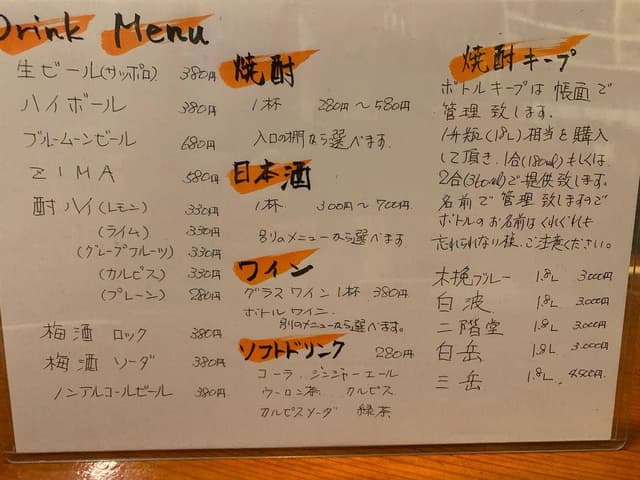 Drink Menu
生ビール(サッポロ) 380円
ハイボール 380円
ブルームーンビール 680円
ZIMA 580円
酎ハイ(レモン) 330円
(ライム) 330円
(グレープフルーツ) 330円
(カルピス) 330円
(プレーン) 280円
梅酒 ロック 380円
梅酒 ソーダ 380円
ノンアルコールビール 380円
焼酎
1杯 280円〜580円
入口の棚から選べます
日本酒
1杯 300円〜700円
別のメニューから選べます
ワイン
グラスワイン 1杯 380円
ボトルワイン
別のメニューから選べます。
ソフトドリンク 280円
コーラ ジンジャーエール
ウーロン茶 カルピス
カルピスソーダ 緑茶
焼酎キープ
ボトルキープは帳面で
管理致します。
1升瓶(1.8L)相当を購入
して頂き、1合(180ml)もしくは、
2合(360ml)で提供致します。
名前で管理致しますので
ボトルのお名前はくれぐれも
忘れられない様、ご注意ください。
木挽ブルー 1.8L 3,000円
白波 1.8L 3,000円
二階堂 1.8L 3,000円
白岳 1.8L 3,000円
三岳 1.8L 4,500円